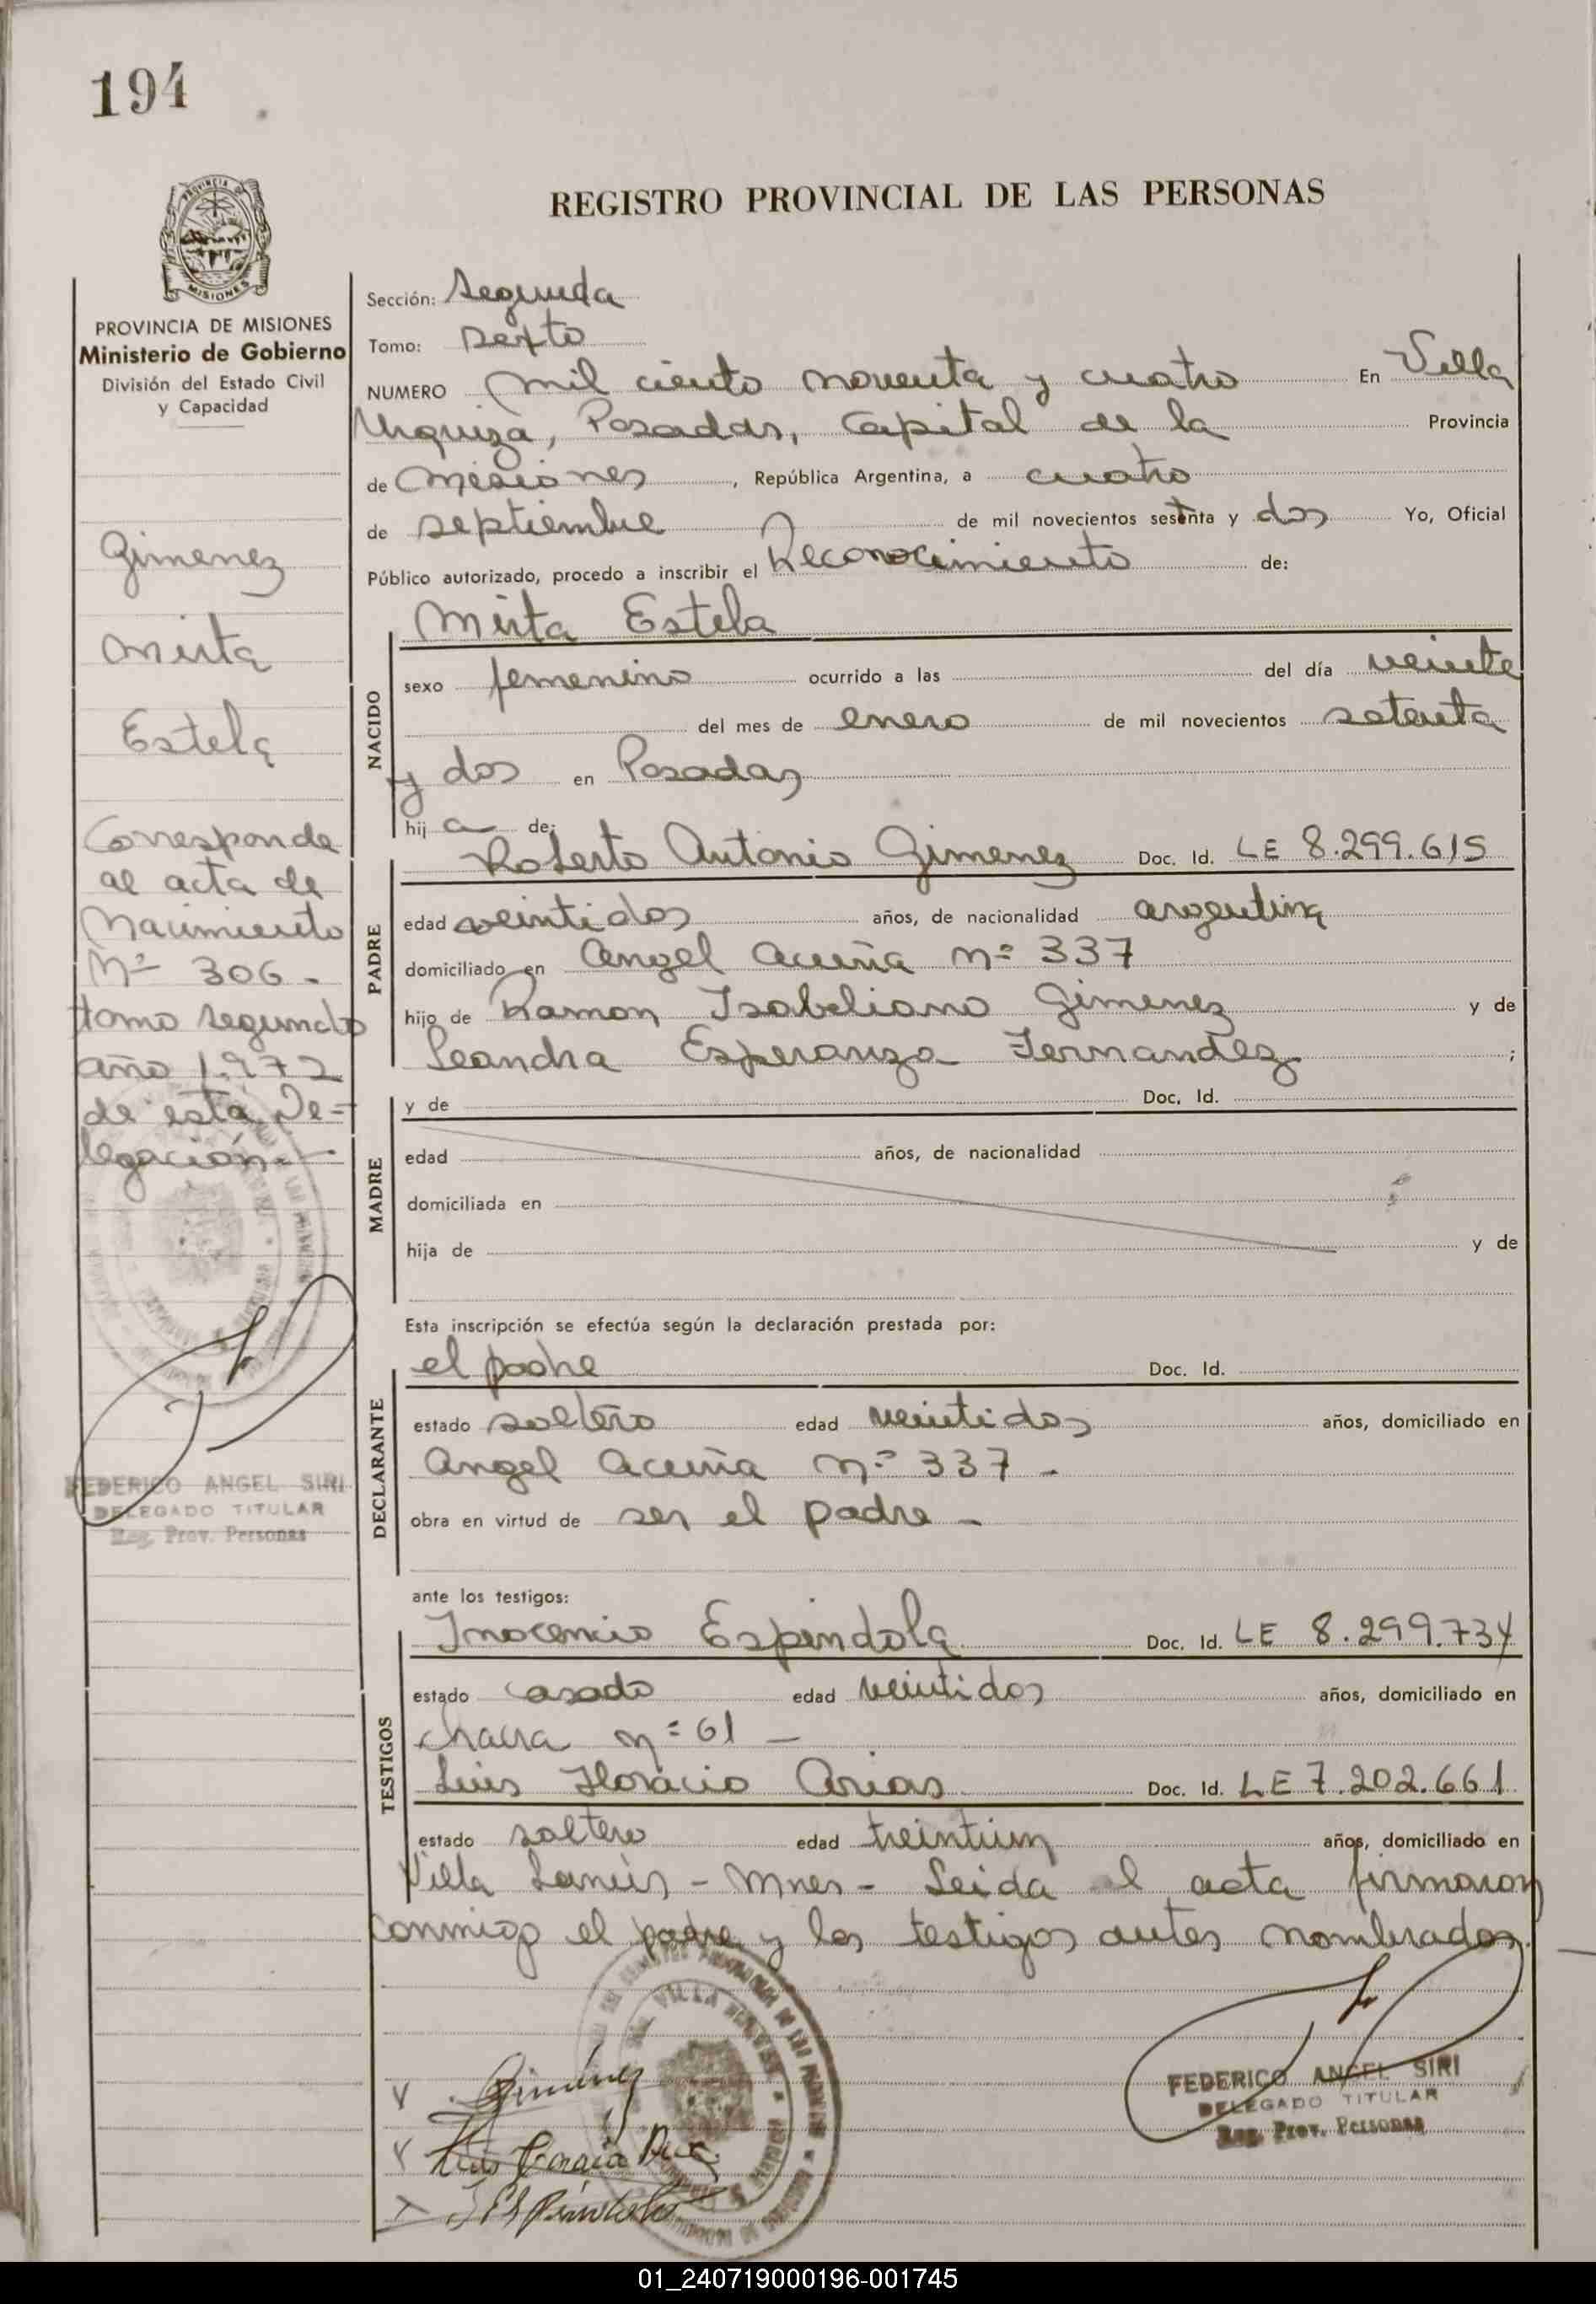 194
REGISTRO PROVINCIAL DE LAS PERSONAS
PROVINCIA DE MISIONES
Ministerio de Gobierno
División del Estado Civil
y Capacidad
Gimenez
Mirta
Estela
Corresponde
al acta de
Nacimiento
Nº 306 -
tomo segundo
año 1.972
de esta De-
legación.-
FEDERICO ANGEL SIRI
DELEGADO TITULAR
Reg. Prov. Personas
Sección: Segunda
Tomo: Sexto
NUMERO mil ciento noventa y cuatro En Villa
Urquiza, Posadas, Capital de la Provincia
de Misiones, República Argentina, a cuatro
de septiembre de mil novecientos setenta y dos Yo, Oficial
Público autorizado, procedo a inscribir el Reconocimiento de:
NACIDO
Mirta Estela
sexo femenino ocurrido a las del día veinte
del mes de enero de mil novecientos setenta
y dos en Posadas
hij a de:
PADRE
Roberto Antonio Gimenez Doc. Id. LE 8.299.615
edad veintidos años, de nacionalidad argentina
domiciliado en Angel Acuña nº 337
hijo de Ramon Isabeliano Gimenez y de
Leandra Esperanza Fernandez ;
MADRE
y de Doc. Id.
edad años, de nacionalidad
domiciliada en
hija de y de
Esta inscripción se efectúa según la declaración prestada por:
DECLARANTE
el padre Doc. Id.
estado soltero edad veintidos años, domiciliado en
Angel Acuña nº 337 -
obra en virtud de ser el padre -
ante los testigos:
TESTIGOS
Inocencio Espindola Doc. Id. LE 8.299.734
estado casado edad veintidos años, domiciliado en
chacra nº 61 -
Luis Horacio Arias Doc. Id. LE 7.202.661
estado soltero edad treintiun años, domiciliado en
Villa Lanús - Mnes - Leida el acta firmaron
conmigo el padre y los testigos antes nombrados.
Gimenez
FEDERICO ANGEL SIRI
DELEGADO TITULAR
Reg. Prov. Personas
01_240719000196-001745